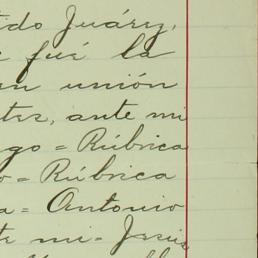 ido Juáry,
e fué la
en unión
tes, ante mi
go = Rúbrica
o = Rúbrica
a = Antonio
te mi = Jesús